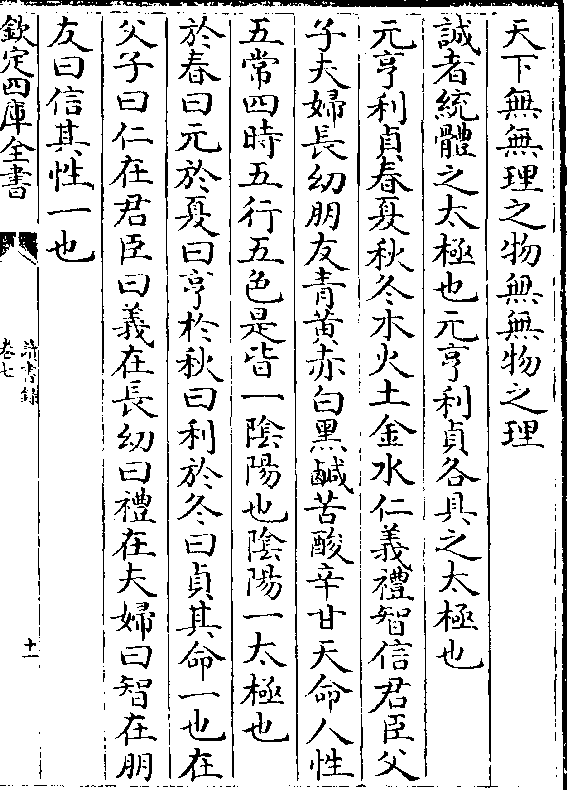 天下無無理之物無無物之理
誠者統體之太極也元亨利貞各具之太極也
元亨利貞春夏秋冬水火土金水仁義禮智信君臣父
子夫婦長幼朋友青黄赤白黑鹹苦酸辛甘天命人性
五常四時五行五色是皆一陰陽也陰陽一太極也
於春曰元於夏曰亨於秋曰利於冬曰貞其命一也在
父子曰仁在君臣曰義在長幼曰禮在夫婦曰智在朋
友曰信其性一也
欽定四庫全書
讀書録
卷七
十一